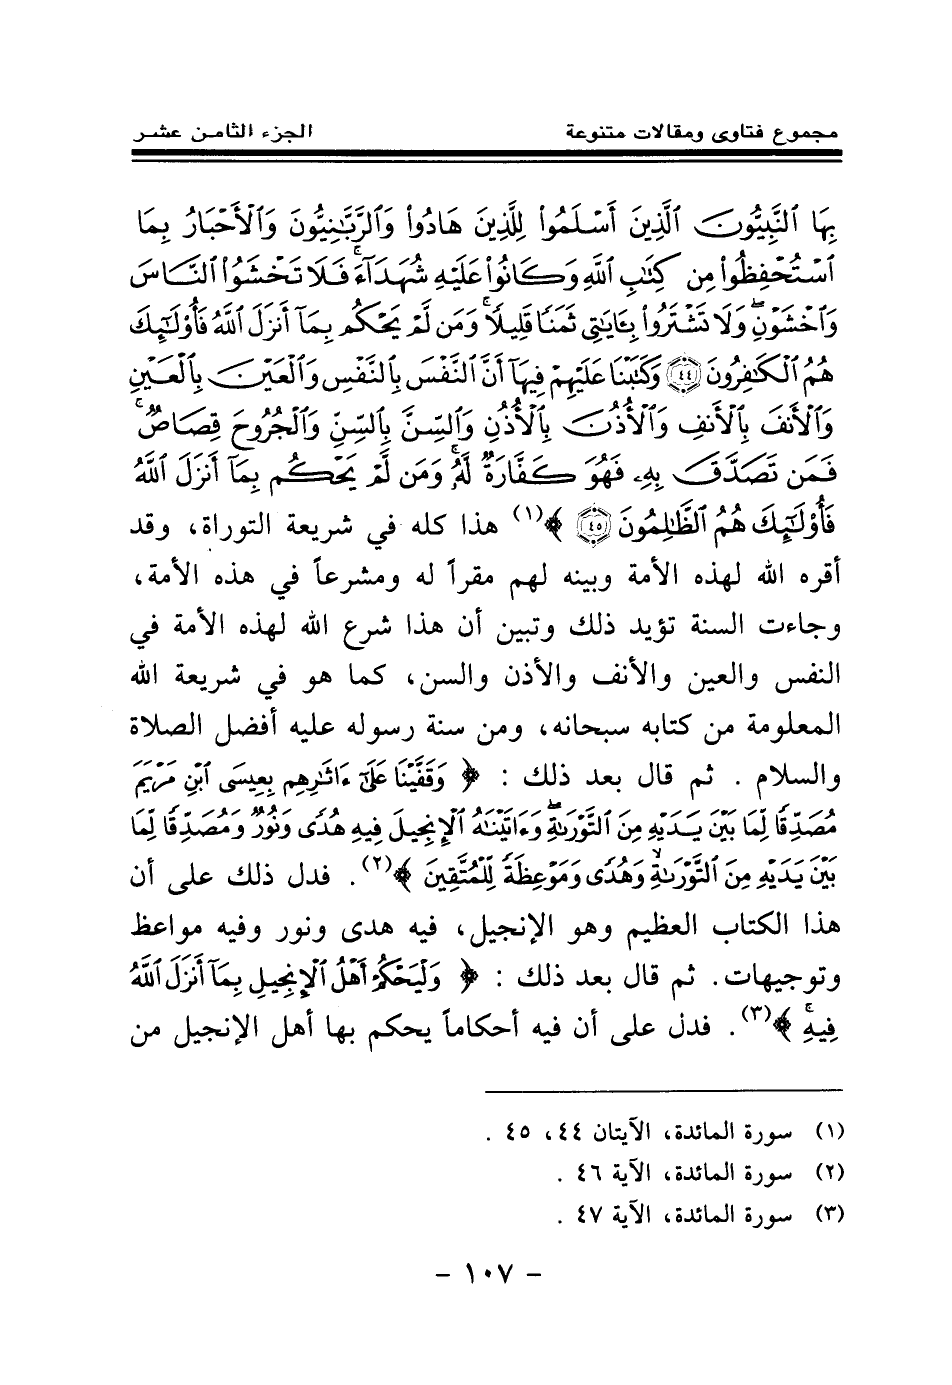 مجموع فتاوى ومقالات متنوعة الجزء الثامن عشر
بِهَا ٱلنَّبِيُّونَ ٱلَّذِينَ أَسْلَمُوا۟ لِلَّذِينَ هَادُوا۟ وَٱلرَّبَّـٰنِيُّونَ وَٱلْأَحْبَارُ بِمَا
ٱسْتُحْفِظُوا۟ مِن كِتَـٰبِ ٱللَّهِ وَكَانُوا۟ عَلَيْهِ شُهَدَآءَ ۚ فَلَا تَخْشَوُا۟ ٱلنَّاسَ
وَٱخْشَوْنِ وَلَا تَشْتَرُوا۟ بِـَٔايَـٰتِى ثَمَنًا قَلِيلًا ۚ وَمَن لَّمْ يَحْكُم بِمَآ أَنزَلَ ٱللَّهُ فَأُو۟لَـٰٓئِكَ
هُمُ ٱلْكَـٰفِرُونَ ٤٤ وَكَتَبْنَا عَلَيْهِمْ فِيهَآ أَنَّ ٱلنَّفْسَ بِٱلنَّفْسِ وَٱلْعَيْنَ بِٱلْعَيْنِ
وَٱلْأَنفَ بِٱلْأَنفِ وَٱلْأُذُنَ بِٱلْأُذُنِ وَٱلسِّنَّ بِٱلسِّنِّ وَٱلْجُرُوحَ قِصَاصٌ ۚ
فَمَن تَصَدَّقَ بِهِۦ فَهُوَ كَفَّارَةٌ لَّهُۥ ۚ وَمَن لَّمْ يَحْكُم بِمَآ أَنزَلَ ٱللَّهُ
فَأُو۟لَـٰٓئِكَ هُمُ ٱلظَّـٰلِمُونَ ٤٥ ﴾(١) هذا كله في شريعة التوراة، وقد
أقره الله لهذه الأمة وبينه لهم مقراً له ومشرعاً في هذه الأمة،
وجاءت السنة تؤيد ذلك وتبين أن هذا شرع الله لهذه الأمة في
النفس والعين والأنف والأذن والسن، كما هو في شريعة الله
المعلومة من كتابه سبحانه، ومن سنة رسوله عليه أفضل الصلاة
والسلام . ثم قال بعد ذلك : ﴿ وَقَفَّيْنَا عَلَىٰٓ ءَاثَـٰرِهِم بِعِيسَى ٱبْنِ مَرْيَمَ
مُصَدِّقًا لِّمَا بَيْنَ يَدَيْهِ مِنَ ٱلتَّوْرَىٰةِ ۖ وَءَاتَيْنَـٰهُ ٱلْإِنجِيلَ فِيهِ هُدًى وَنُورٌ وَمُصَدِّقًا لِّمَا
بَيْنَ يَدَيْهِ مِنَ ٱلتَّوْرَىٰةِ وَهُدًى وَمَوْعِظَةً لِّلْمُتَّقِينَ ﴾(٢). فدل ذلك على أن
هذا الكتاب العظيم وهو الإنجيل، فيه هدى ونور وفيه مواعظ
وتوجيهات. ثم قال بعد ذلك : ﴿ وَلْيَحْكُمْ أَهْلُ ٱلْإِنجِيلِ بِمَآ أَنزَلَ ٱللَّهُ
فِيهِ ۚ ﴾(٣). فدل على أن فيه أحكاماً يحكم بها أهل الإنجيل من
(١) سورة المائدة، الآيتان ٤٤، ٤٥ .
(٢) سورة المائدة، الآية ٤٦ .
(٣) سورة المائدة، الآية ٤٧ .
- ١٠٧ -